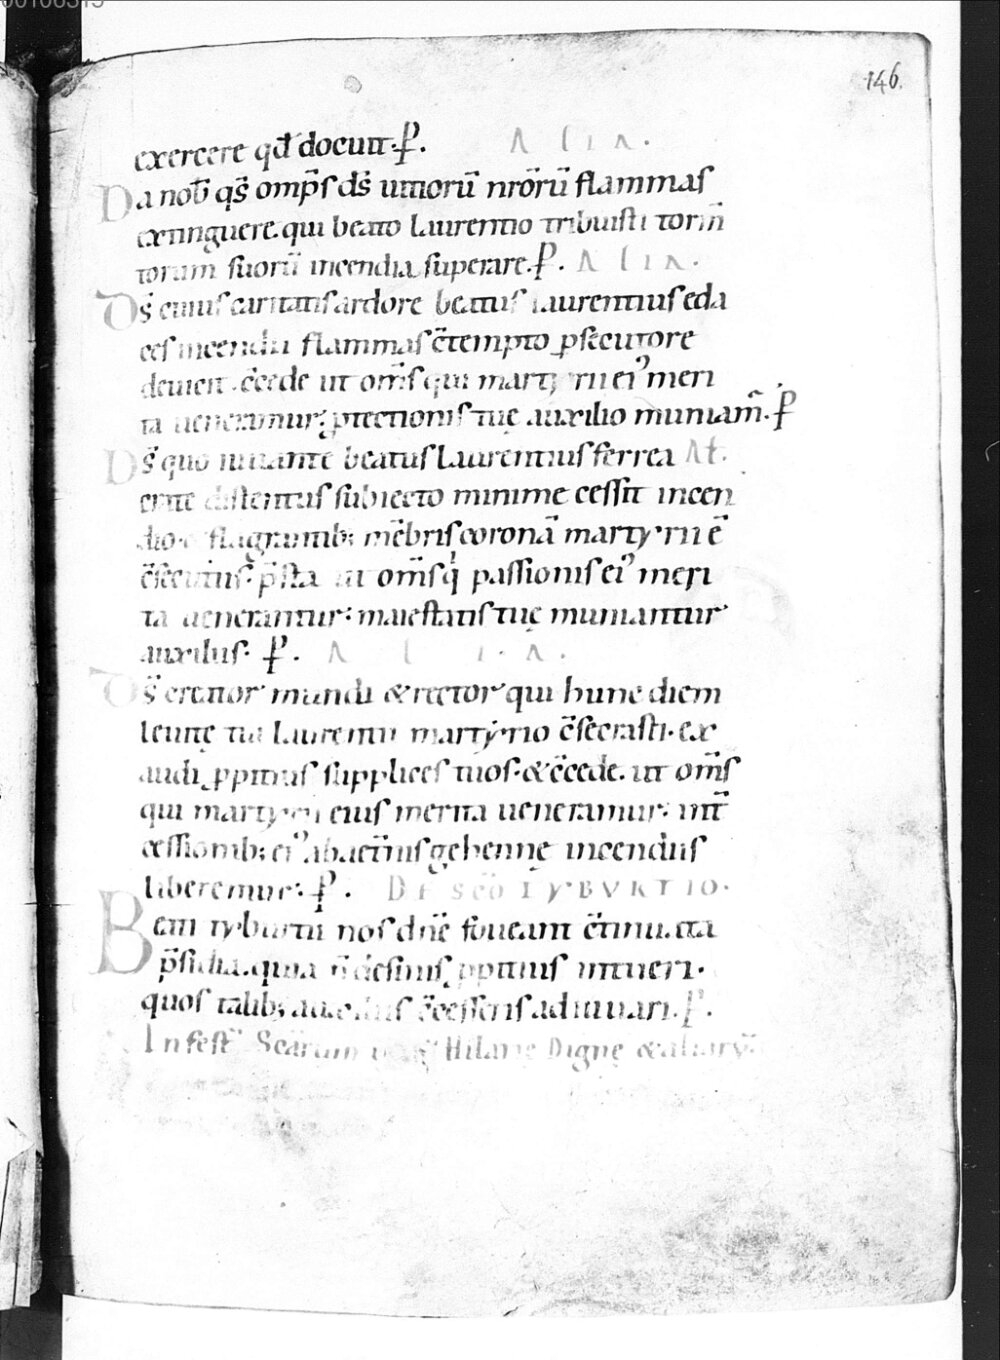 00106313
146.
exercere qđ docuit. P. ALIA.
Da nob̄ q̄s omp̄s d̄s uitiorū nr̄orū flammas
extinguere. qui beato laurentio tribuisti torm̄
torum suorū incendia superare. P. ALIA.
D̄s cuius caritatis ardore beatus laurentius eda
ces incendii flammas c̄tempto p̱secutore
deuicit. c̄cede ut om̄s qui martyrii ei' meri
ta ueneramur; p̱tectionis tuę auxilio muniam̄. P
D̄s quo iuuante beatus laurentius ferrea AƗ.
crate distentus subiecto minime cessit incen
dio. & flagrantib; mēbris coronā martyrii ē
c̄secutus. p̄sta ut om̄s q̇ passionis ei' meri
ta uenerantur: maiestatis tuę muniantur
auxiliis. P. ALIA.
D̄s creator mundi & rector qui hunc diem
leuitę tui laurentii martyrio c̄secrasti. ex
audi p̱pitius supplices tuos. & c̄cede. ut om̄s
qui martyrii eius merita ueneramur. int̄
cessionib; ei' ab aet̄nis gehennę incendiis
liberemur: P. DE SCŌ TYBVRTIO.
Beati tyburtii nos dn̄e foueant c̄tinuata
p̄sidia. quia n̄ desinis p̱pitius intueri.
quos talib; auxiliis c̄cesseris adiuuari. P.
In fest̄ Scārum Hilarie Digne & aliarū